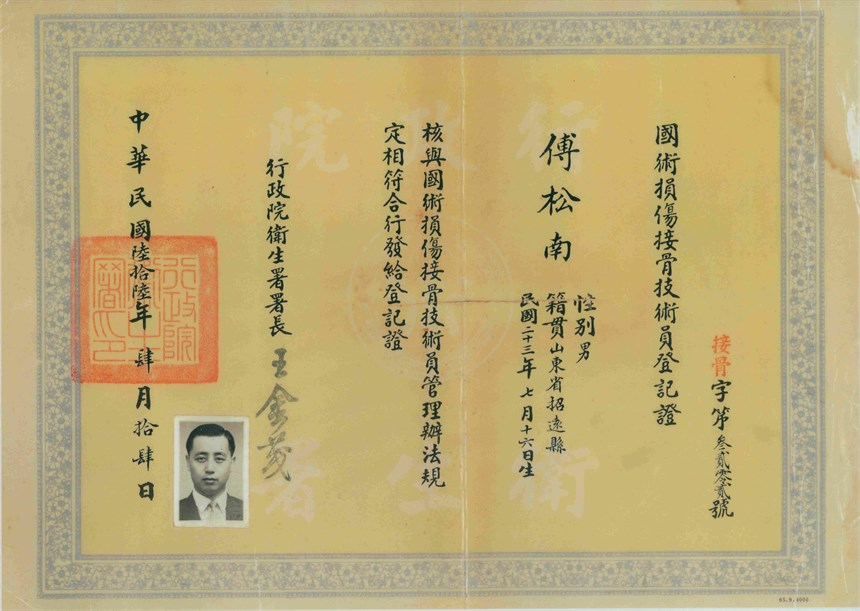 國術損傷接骨技術員登記證
接骨字第叁貳零貳號
傅松南
性別男
籍貫山東省招遠縣
民國二十三年七月十六日生
核與國術損傷接骨技術員管理辦法規
定相符合行發給登記證
行政院衛生署署長 王金茂
中華民國陸拾陸年肆月拾肆日
行政院衛生署
行政院衛生署印
65.9.4000